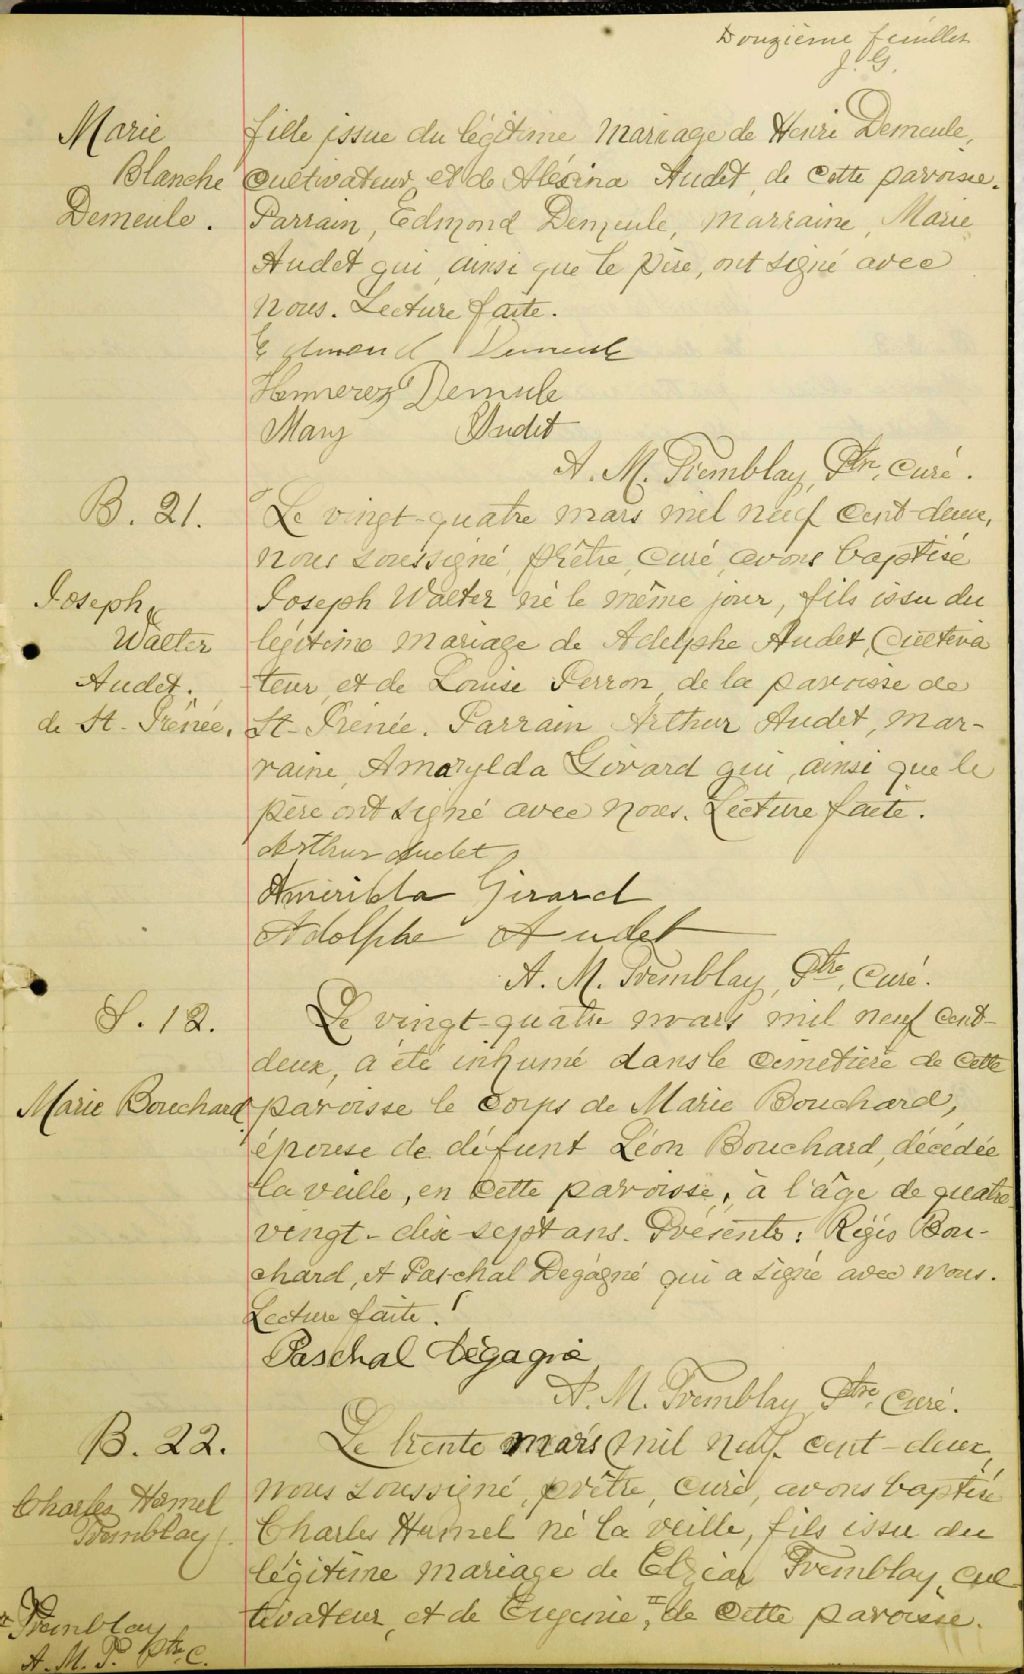 Douzième feuillet
J. G.
Marie
Blanche
Demeule.
fille issue du légitime mariage de Henri Demeule,
Cultivateur, et de Alésina Audet, de cette paroisse.
Parrain, Edmond Demeule, marraine, Marie
Audet qui, ainsi que le père, ont signé avec
nous. Lecture faite.
Edmond Demeule
Demeule
Mary Audet
A. M. Tremblay, Ptre, Curé.
B. 21.
Joseph
Walter
Audet.
de St-Irénée.
Le vingt-quatre mars mil neuf cent-deux,
nous soussigné, prêtre, curé, avons baptisé
Joseph Walter né le même jour, fils issu du
légitime mariage de Adelphe Audet, Cultiva
teur, et de Louise Perron, de la paroisse de
St-Irénée. Parrain Arthur Audet, mar-
raine, Amarylda Girard qui, ainsi que le
père ont signé avec nous. Lecture faite.
Arthur Audet
Amirilda Girard
Adolphe Audet
A. M. Tremblay, Ptre, Curé.
S. 12.
Marie Bouchard
Le vingt-quatre mars mil neuf cent-
deux, a été inhumé dans le cimetière de cette
paroisse le corps de Marie Bouchard,
épouse de défunt Léon Bouchard, décédée
la veille, en cette paroisse, à l'âge de quatre-
vingt-dix-sept ans. Présents: Régis Bou-
chard, et Paschal Degagné qui a signé avec nous.
Lecture faite.
Paschal Dégagné
A. M. Tremblay, Ptre, Curé.
B. 22.
Charles Hamel
Tremblay.
Le trente mars mil neuf cent-deux,
nous soussigné, prêtre, curé, avons baptisé
Charles Hamel né la veille, fils issu du
légitime mariage de Elzéar Tremblay, cul-
tivateur, et de Eugenie, # de cette paroisse.
# Tremblay
A. M. T. Ptre C.